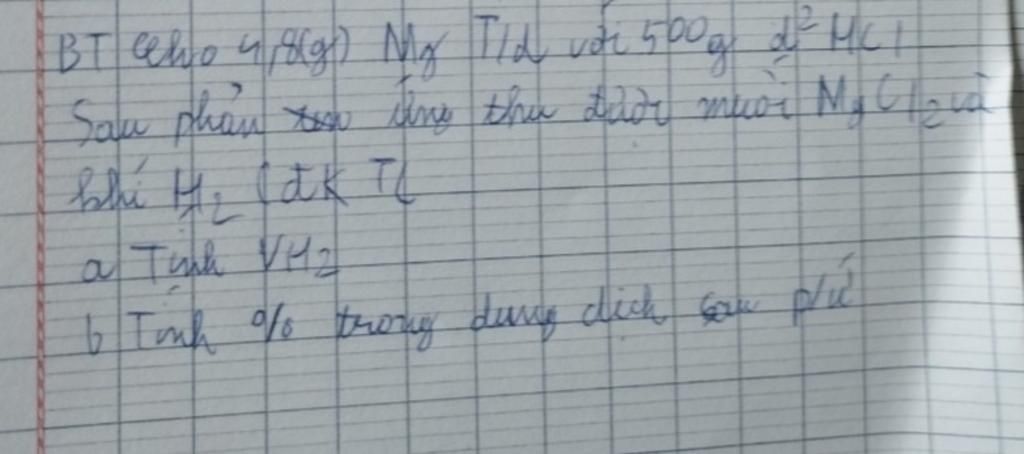 BT Cho 4,8(g) Mg T/d với 500g d² HCl
Sau phản ứng thu được muối MgCl₂ và
khí H₂ (đK TC
a Tính VH₂
b Tính % trong dung dịch sau p/ứ